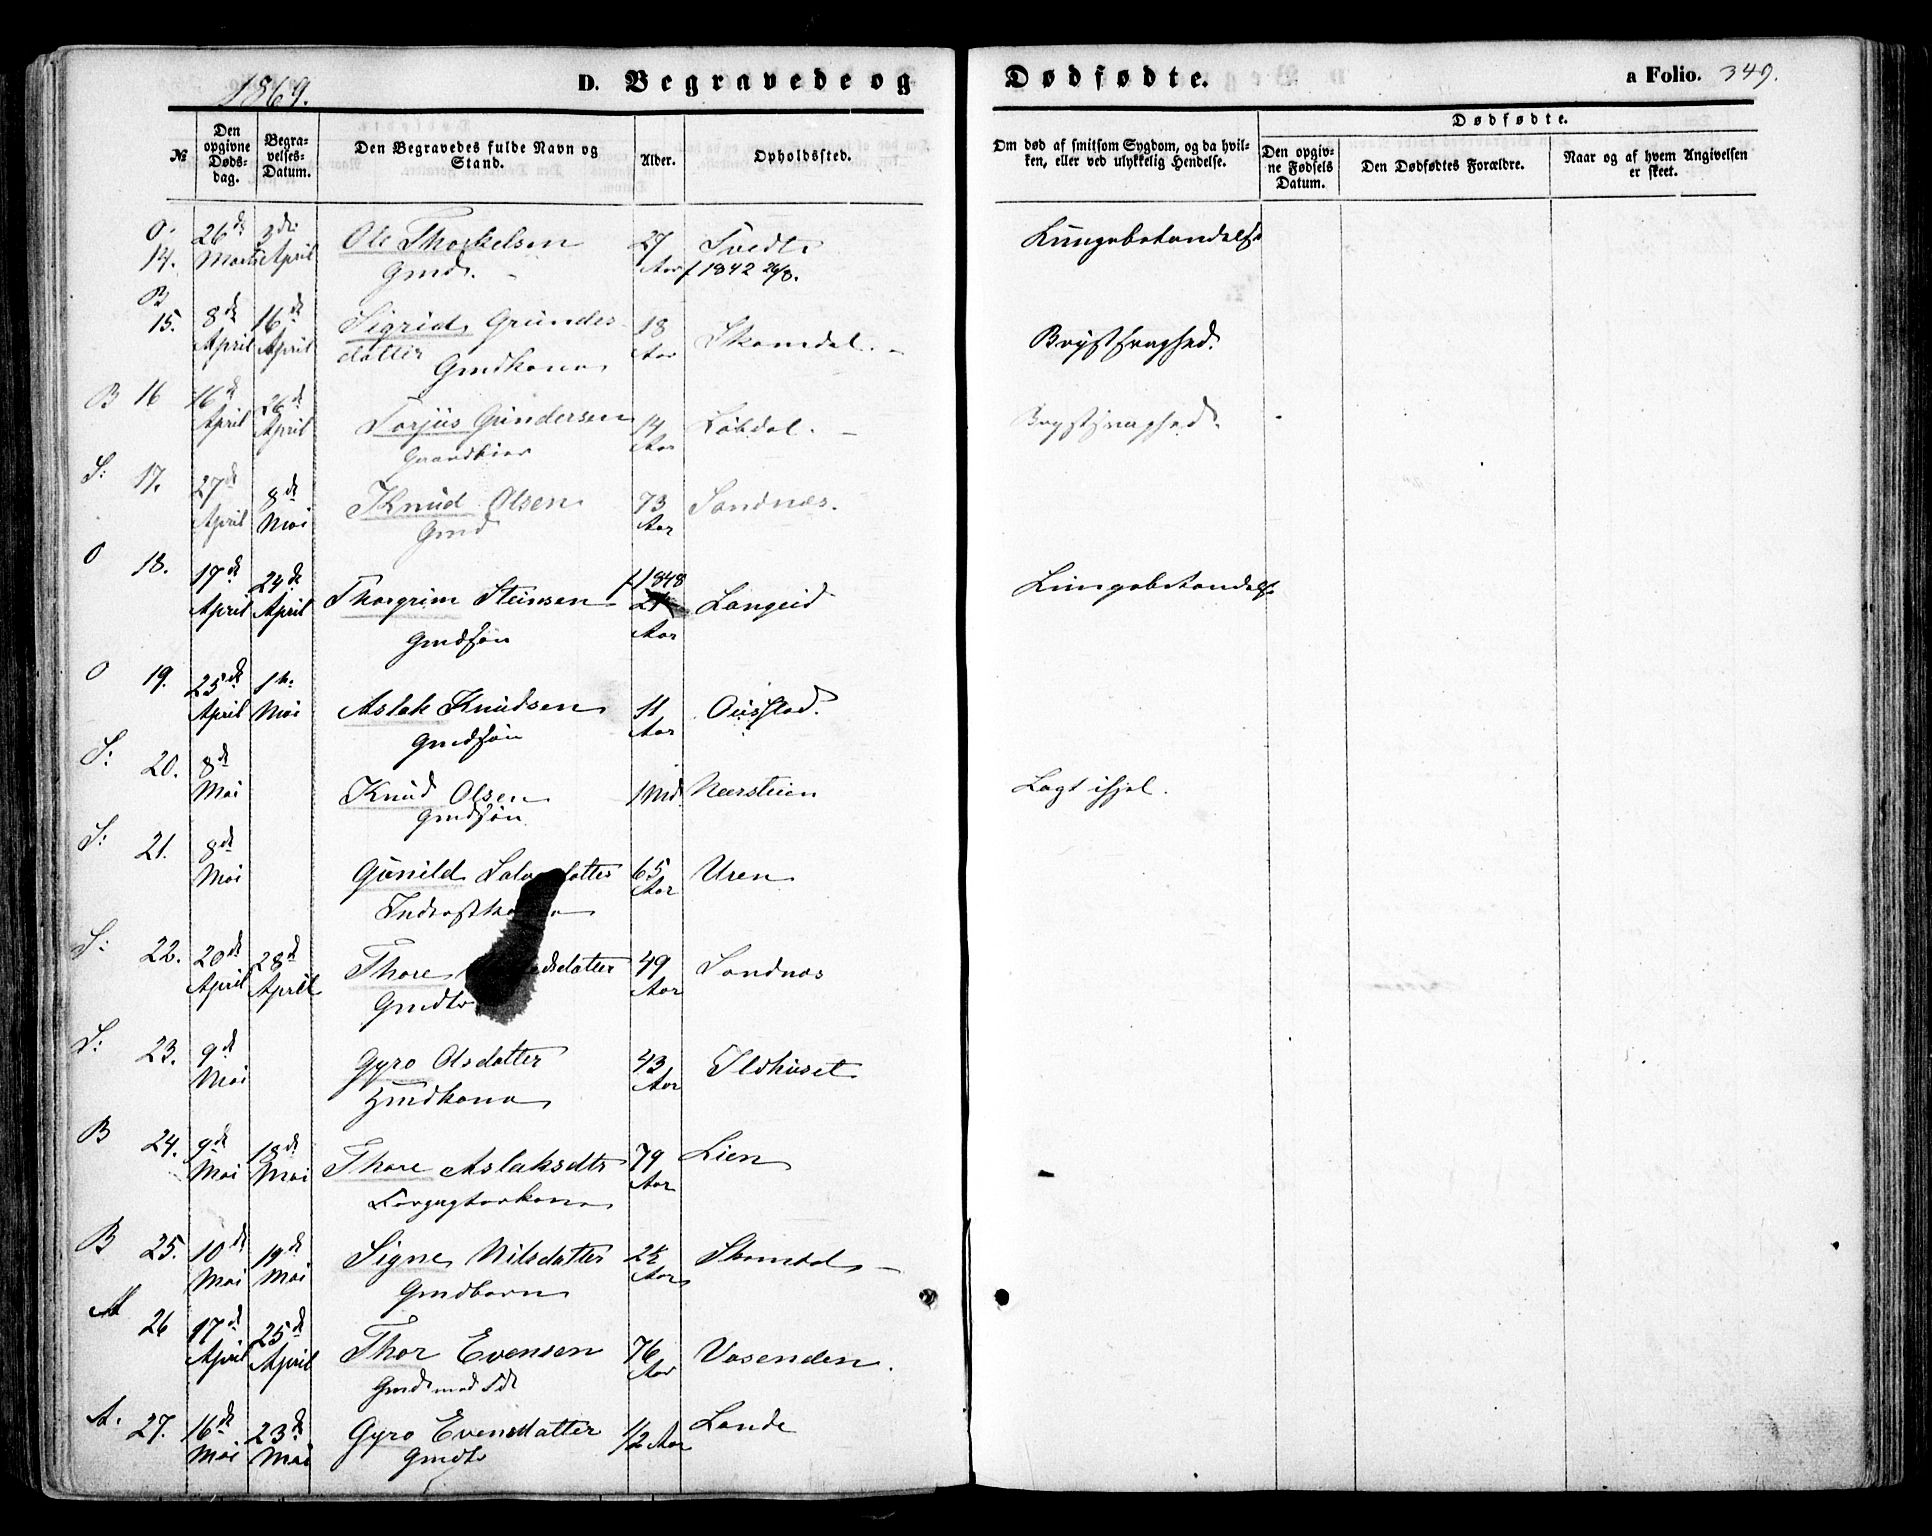 1869.
D. Begravede og
Dødfødte.
a Folio. 349.
№
Den opgivne Døds-dag.
Begra-velses-Datum.
Den Begravedes fulde Navn og Stand.
Alder.
Opholdssted.
Om død af smitsom Sygdom, og da hvil-ken, eller ved ulykkelig Hendelse.
Dødfødte.
Den opgiv-ne Fødsels Datum.
Den Dødfødtes Forældre.
Naar og af hvem Angivelsen er skeet.
O. 14. 26de Marts 3die April Ole Thorkelsen 27 Aar Tvedt
Gmd. f 1842 26/8.
Lungebetændelse
B 15. 8de April 16de April Sigrid Gunders-
datter Gmdkona 18 Aar Skomdal.
Brystsvaghed.
B 16 16de April 26de April Torjus Gundersen 14 Aar Løkdal.
Brystsvaghed.
S: 17. 27de April 8de Mai Knud Olsen 73 Aar Sandnæs.
Gmd
O 18. 17de April 24de April Thorgrim Steinsen f 1848 21 Aar Langeid
Gmdsøn
Lungebetændelse
O 19. 25de April 1te Mai Aslak Knudsen 11 Aar
Gmdsøn
S: 20. 8de Mai Knud Olsen 1 Md. Nærsteien
Gmdsøn
Lagt ihjel.
S: 21. 8de Mai Gunild 65 Aar Uren
S: 22. 20de April 28de April Thore 49 Aar Sandnæs
Gmdtr
S: 23. 9de Mai Gyro Olsdatter 43 Aar Ildhuset
Gmdkona
B 24. 9de Mai 18de Mai Thore Aslaksdtr 79 Aar Lien
B 25. 10de Mai 19de Mai Signe Nilsdatter 2½ Aar Skomdal
Gmdbarn
A 26 17de April 25de April Thor Evensen 76 Aar Vasenden.
A. 27. 16de Mai 23de Mai Gyro Evensdatter 1/2 Aar Lande
Gmdtr